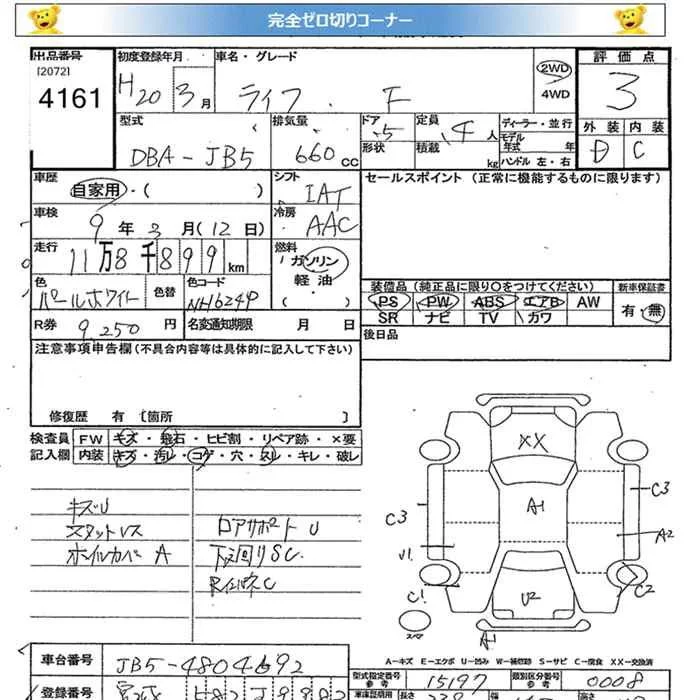 完全ゼロ切りコーナー
出品番号 初度登録年月 車名・グレード 評価点
[2072]
4161 H20 3月 ライフ F 2WD 4WD 3
型式 排気量 ドア 定員 ディーラー・並行 外装 内装
DBA-JB5 660cc 5 4人 モデル年式 年 D C
形状 積載 kg ハンドル 左・右
車歴 自家用・( ) シフト IAT セールスポイント (正常に機能するものに限ります)
車検 9年3月(12日) 冷房 AAC
走行 11万8千899km 燃料 ガソリン
軽油 ( )
色 色替 色コード 装備品 (純正品に限り〇をつけてください) 新車保証書
パールホワイト NH624P PS PW ABS エアB AW 有・無
SR ナビ TV カワ
R券 9,250円 名変通知期限 月 日 後日品
注意事項申告欄(不具合内容等は具体的に記入して下さい)
修復歴 有 [箇所 ]
検査員 FW キズ・飛石・ヒビ割・リペア跡・×要
記入欄 内装 キズ・汚レ・コゲ・穴・スレ・キレ・破レ
キズU
スタットレス ロアサポートU
ホイルカバーA 下廻りSC.
RインパネC
XX
A1
C3 C3
A2
U1
C1 U2 C2
スペア
A1
A-キズ E-エクボ U-凹み W-補修跡 S-サビ C-腐食 XX-交換済
車台番号 JB5-4804692 型式指定番号 参考 15197 類別区分番号 0008
登録番号 車庫証明用 参考 長さ